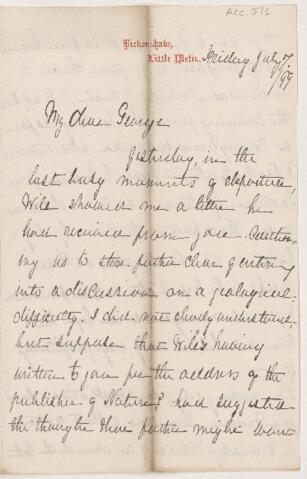 Acc. 376
Birkenshaw,
Little Metis.
Friday July 7/99
My dear George
Yesterday, in the
last busy moments of departure,
Will showed me a letter he
had received from you. Caution-
ing us to steer father clear of entering
into a discussion on a geological
difficulty. I did not clearly understand,
but suppose that Will's having
written to you for the address of the
publisher of "Nature" had suggested
the thought that father might have